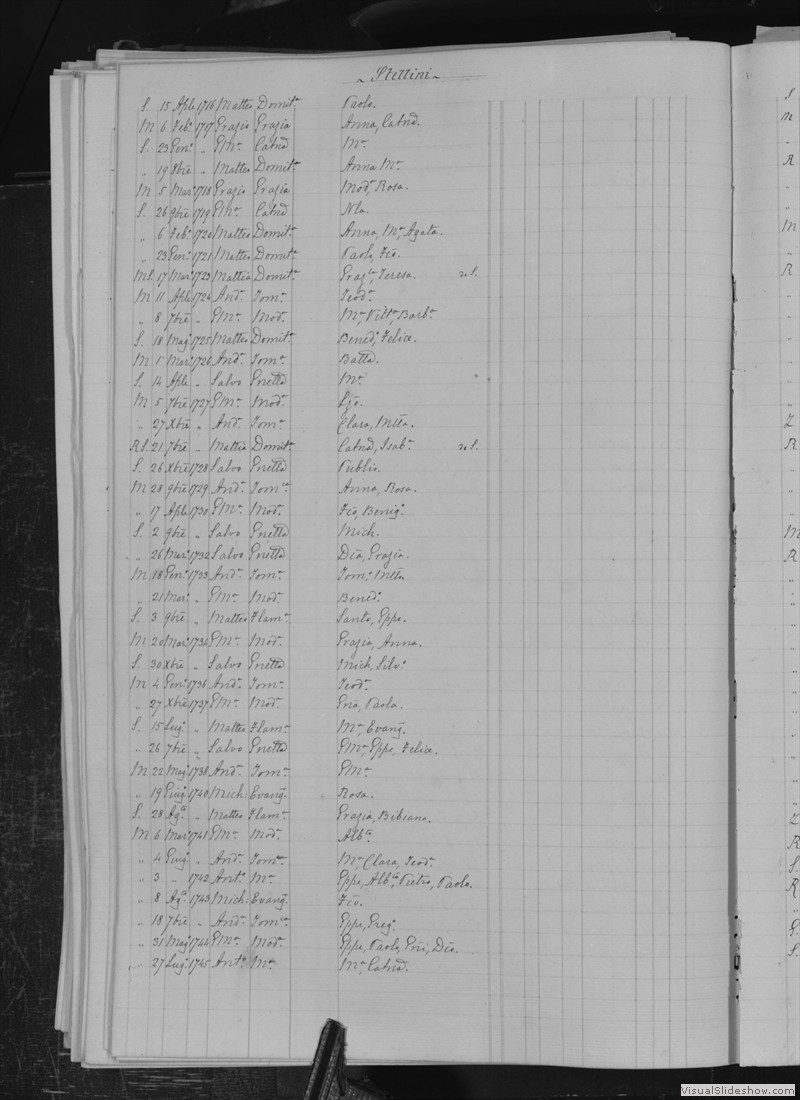 Stettini
S. 15 Aple 1716 Matteo Domit.ª Paola.
M 6 Feb.º 1717 Grazio Grazia Anna, Catnd.
S. 23 Gen.º „ GMª Catnd Mª
„ 19 8bre „ Matteo Domit.ª Anna Mª
M 5 Mar. 1718 Grazio Grazia Mod.ª, Rosa.
S. 26 9bre 1719 GMª Catnd Nla.
„ 6 Feb.º 1720 Matteo Domit.ª Anna, Mª, Agata.
„ 23 Gen.º 1721 Matteo Domit.ª Paolo, Fco.
M.S. 17 Mar. 1723 Matteo Domit.ª Teresa.
M 11 Aple 1724 And.ª Tom.ª Teod.ª
„ 8 7bre „ GMª Mod.ª Mª, Vitt.ª, Barb.ª
S. 18 Mag. 1725 Matteo Domit.ª Bened.º, Felice.
M 1 Mar. 1726 And.ª Tom.ª Batta.
S. 14 Aple „ Salvo Gnetta Mª
M 5 7bre 1727 GMª Mod.ª
„ 27 Xbre „ And.ª Tom.ª Clara,
R.S. 21 7bre „ Matteo Domit.ª Catnd, Isab.ª
S. 26 Xbre 1728 Salvo Gnetta Publio.
M 28 9bre 1729 And.ª Tom.ª Anna, Rosa.
„ 17 Aple 1730 GMª Mod.ª Fco, Benig.º
S. 2 9bre „ Salvo Gnetta Mich.
„ 26 Mar. 1732 Salvo Gnetta Dca, Grazia.
M 18 Gen.º 1733 And.ª Tom.ª Tom.º
„ 21 Mar. „ GMª Mod.ª Bened.º
S. 3 9bre „ Matteo Flam.ª Santo, Gppe.
M 20 Mar. 1734 GMª Mod.ª Grazia, Anna.
S. 30 Xbre „ Salvo Gnetta Mich, Silv.º
M 4 Gen.º 1736 And.ª Tom.ª Teod.ª
„ 27 Xbre 1737 GMª Mod.ª Paola.
S. 15 Lug. „ Matteo Flam.ª Mª, Evang.
„ 26 7bre „ Salvo Gnetta GMª, Gppe, Felice.
M 22 Mag. 1738 And.ª Tom.ª GMª
„ 19 Giug. 1740 Mich: Evang. Rosa.
S. 28 Ag. „ Matteo Flam.ª Grazia, Bibiana.
M 6 Mar. 1741 GMª Mod.ª Alb.
„ 4 Giug. „ And.ª Tom.ª Mª, Clara, Teod.
„ 3 „ 1742 Ant.º Mª Gppe, Alb., Pietro, Paolo.
„ 8 Ag. 1743 Mich: Evang. Fco.
„ 18 7bre „ And.ª Tom.ª Gppe, Greg.º
„ 31 Mag. 1744 GMª Mod.ª Gppe, Paolo, Gni, Dco.
„ 27 Lug. 1745 Ant.º Mª Mª, Catnd.
VisualSlideshow.com